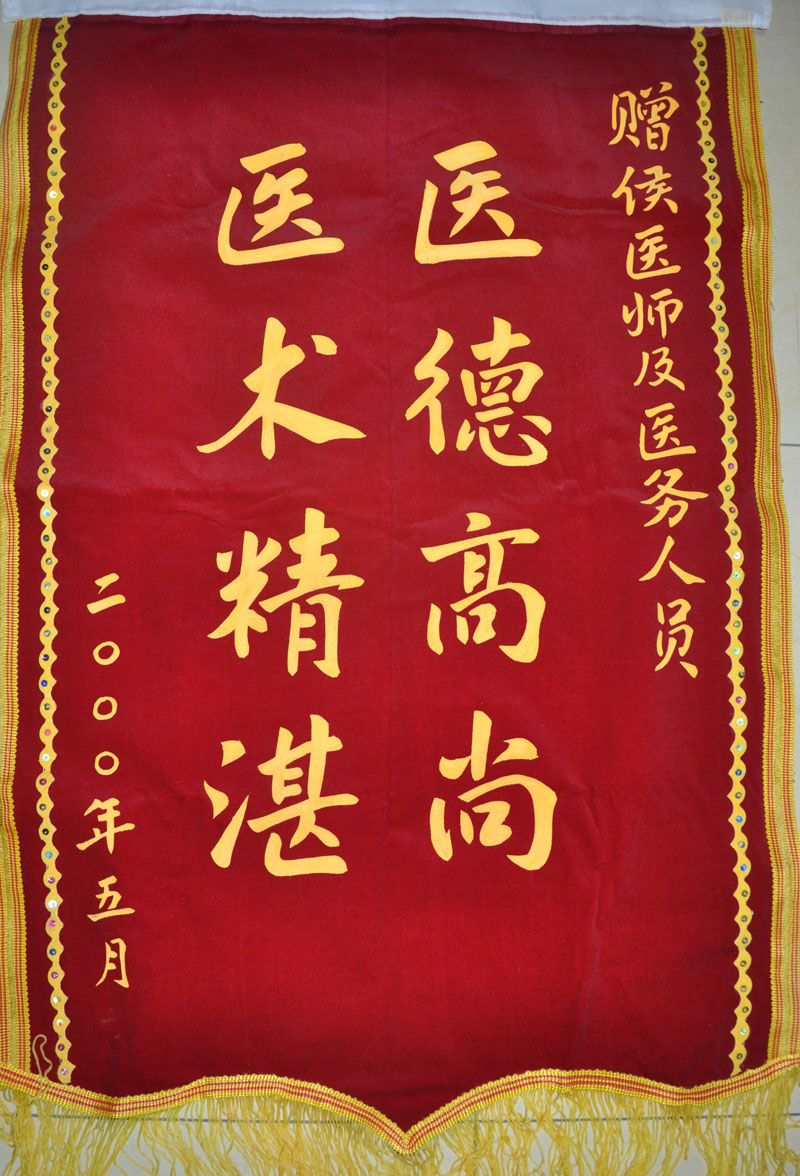 赠侯医师及医务人员
医德高尚
医术精湛
二〇〇〇年五月